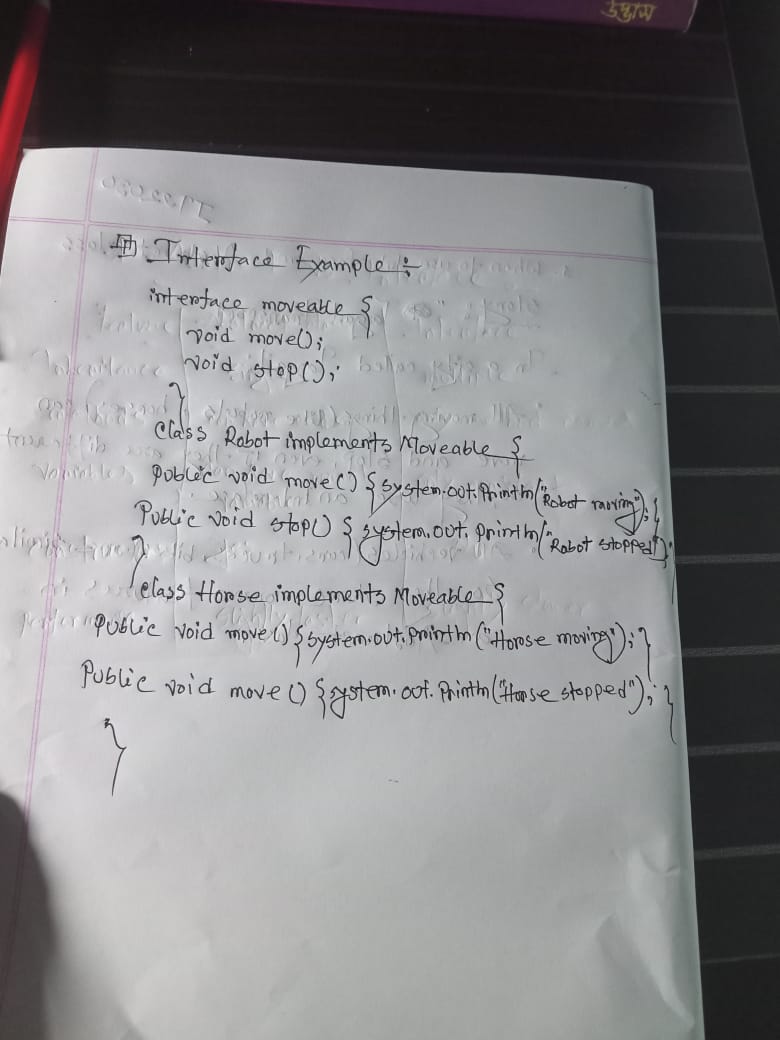 উদ্ভাস
Interface Example ÷
interface moveable {
void move();
void stop();
}
class Robot implements Moveable {
public void move() {system.out.Println("Robot moving"); }
Public void stop() { system.out.println("Robot stopped"); }
}
class Horse implements Moveable {
Public void move() {system.out.println("Horse moving"); }
Public void move() {system.out.Println("Horse stopped"); }
}